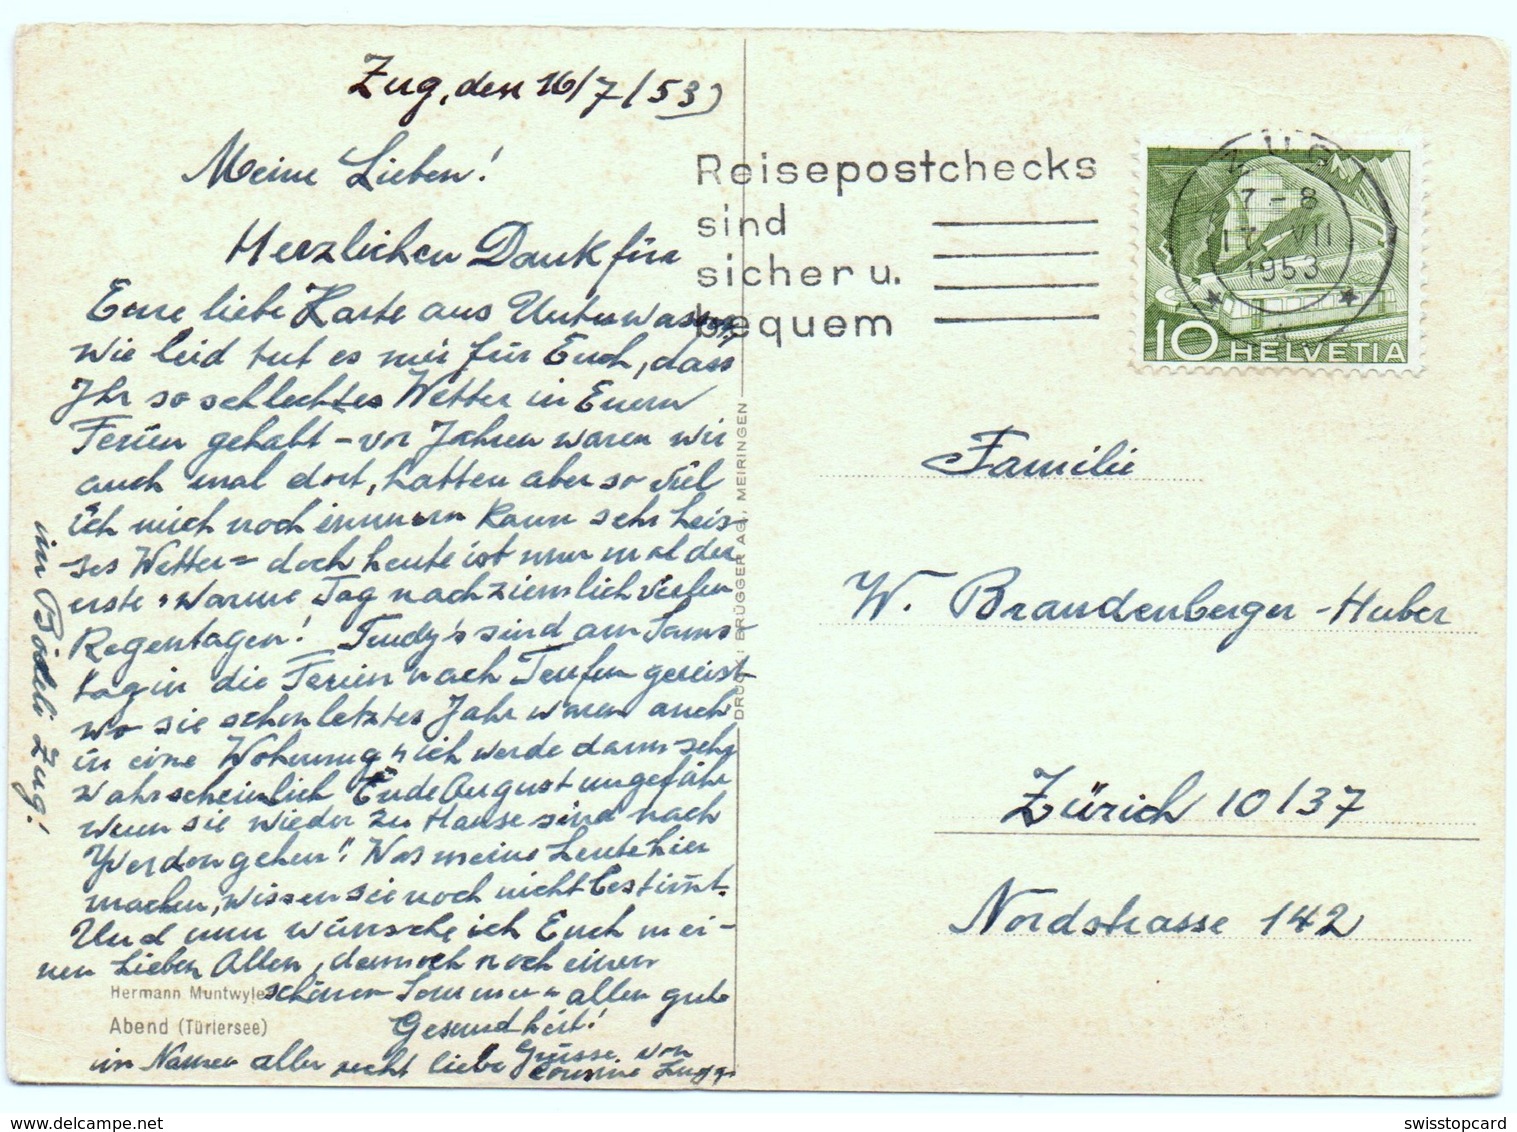 Zug, den 16/7/53
Meine Lieben!
Herzlichen Dank für
Eure liebe Karte aus Unterwasser,
wie leid tut es mir für Euch, dass
Ihr so schlechtes Wetter in Euern
Ferien gehabt – vor Jahren waren wir
auch mal dort, hatten aber so viel
ich mich noch erinnern kann sehr heis-
ses Wetter = doch heute ist nun mal der
erste warme Tag nach ziemlich vielen
Regentagen! sind am Sams-
tag in die Ferien nach Teufen gereist
wo sie schon letztes Jahr waren auch
in eine Wohnung ich werde dann sehr
wahrscheinlich Ende August ungefähr
wenn sie wieder zu Hause sind nach
Yverdon gehen". Was meine Leute hier
machen, wissen sie noch nicht bestimmt.
Und nun wünsche ich Euch mei-
nen Lieben Allen, dennoch noch einen
schönen Sommer allen gute
Gesundheit!
im Namen aller recht liebe Grüsse von
Cousine
im Zug!
Hermann Muntwyler
Abend (Türlersee)
DRUCK: BRÜGGER AG., MEIRINGEN
Reisepostchecks
sind
sicher u.
bequem
ZUG
7 – 8
17. VII
1953
10 HELVETIA
Familie
W. Brandenberger-Huber
Zürich 10/37
Nordstrasse 142
swisstopcard
www.delcampe.net